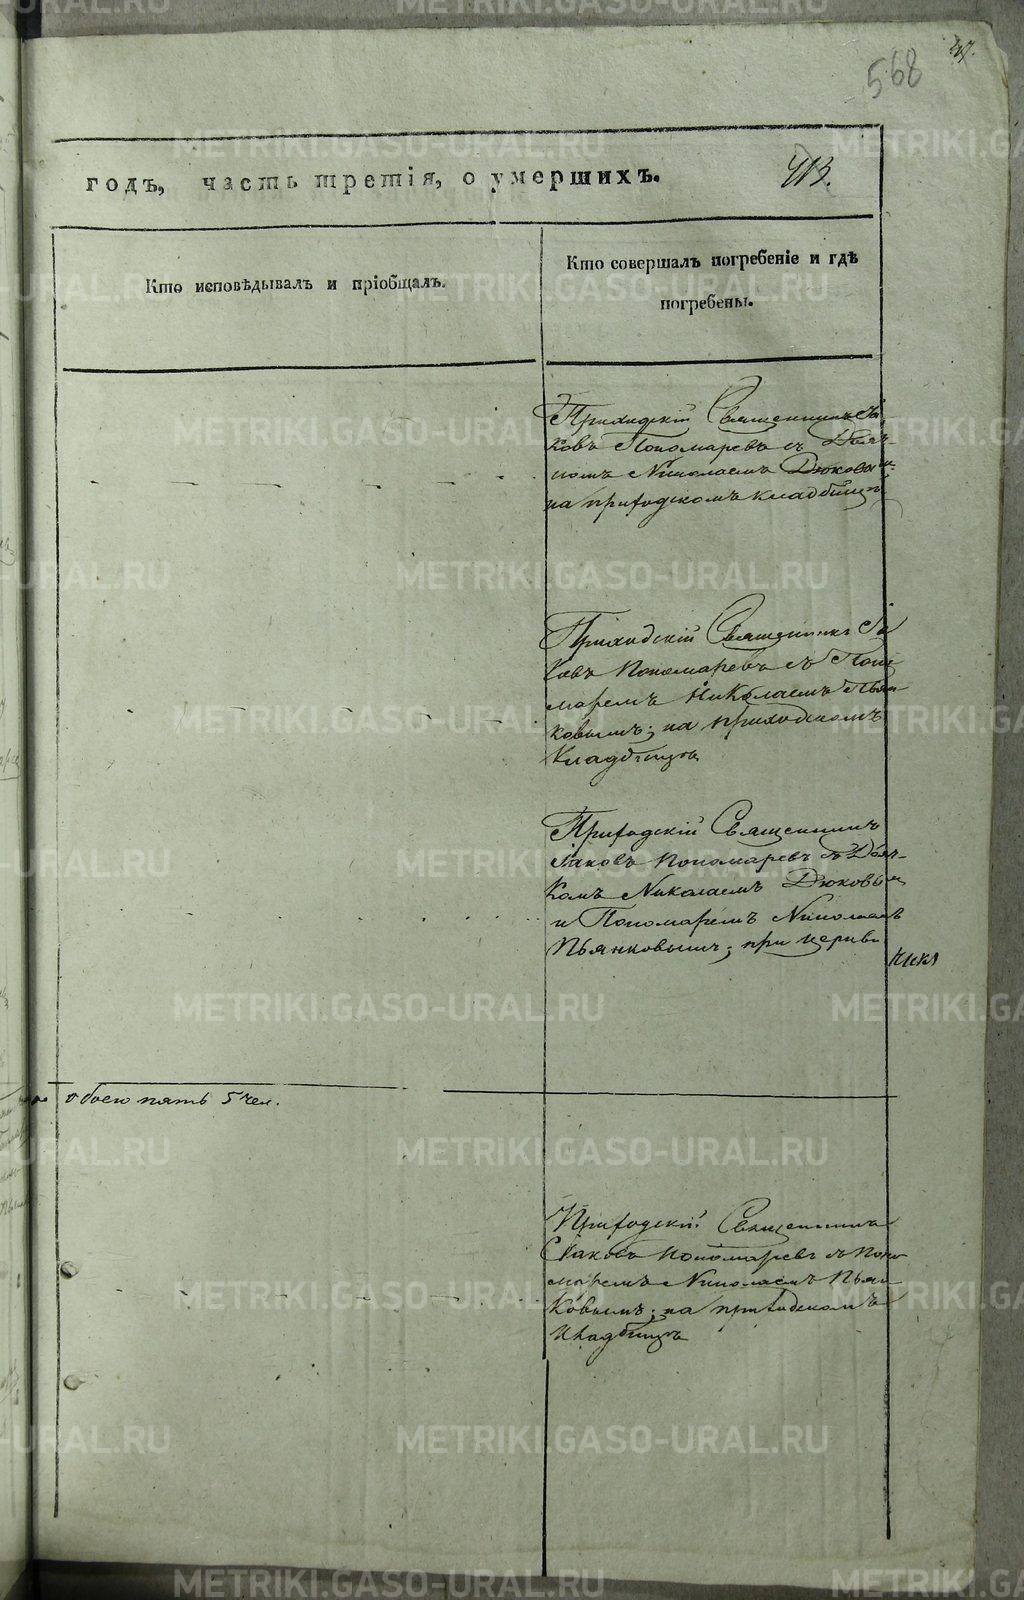 568
годъ, часть третія, о умершихъ.
413.
Кто исповѣдывалъ и пріобщалъ.
Кто совершалъ погребеніе и гдѣ
погребены.
Приходскій Священникъ Іа
ковъ Пономаревъ съ Дьяч-
комъ Николаемъ Дюковым
на приходскомъ кладбищѣ
Приходскій Священникъ Іа
ковъ Пономаревъ съ Поно
маремъ Николаемъ Пьян
ковымъ; на приходскомъ
кладбищѣ
Приходскій Священникъ
Іаковъ Пономаревъ съ Дьяч-
комъ Николаемъ Дюковым
и Пономаремъ Николаемъ
Пьянковымъ; при церкви
обоего пять 5 чел.
Приходскій Священникъ
Іаковъ Пономаревъ съ Поно
маремъ Николаемъ Пьян
ковымъ; на приходскомъ
кладбищѣ
METRIKI.GASO-URAL.RU